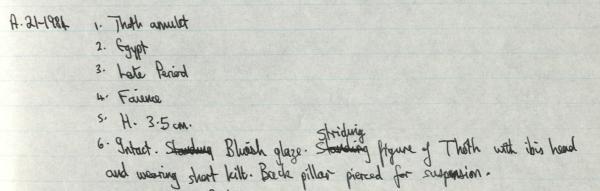 A.21-1984 1. Thoth amulet
2. Egypt
3. Late Period
4. Faience
5. H. 3.5 cm.
6. Intact. Standing Bluish glaze. Standing striding figure of Thoth with ibis head
and wearing short kilt. Back pillar pierced for suspension.